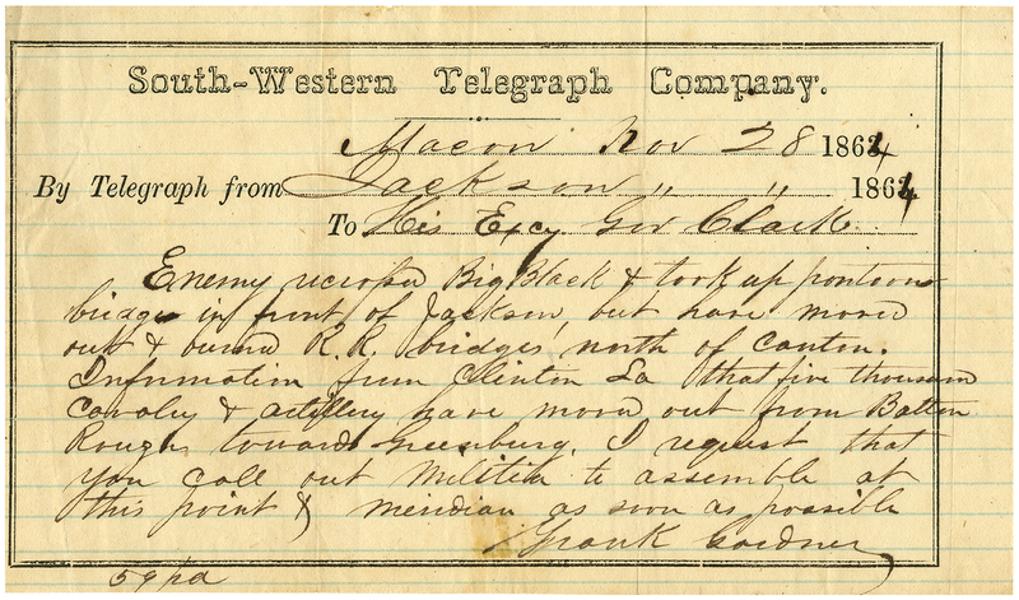 South-Western Telegraph Company.
Macon Nov 28 1864
By Telegraph from Jackson " " 1864
To His Excy Gov Clark
Enemy recrossd Big Black & took up pontoon
bridge in front of Jackson, but have moved
out & burnd R.R. bridges north of Canton.
Information from Clinton La that five thousand
Cavalry & artillery have moved out from Batton
Rouge toward Greensburg. I request that
you call out Militia to assemble at
this point & meridian as soon as possible
Frank Gardner
59 pd